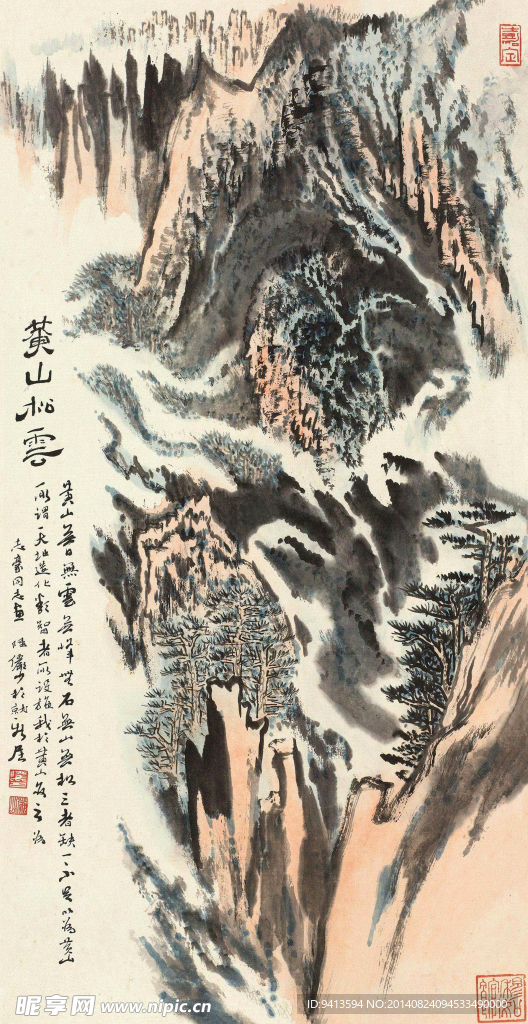 黄山松雲
黄山昔無雲無峰無石無山無松三者缺一不足以為黄山
所謂天地造化彰智者所設施我於黄山每云為
志豪同志画 陸儼少於就新居
嘉定
昵享网 www.nipic.cn
ID:9413594 NO:20140824094533490000